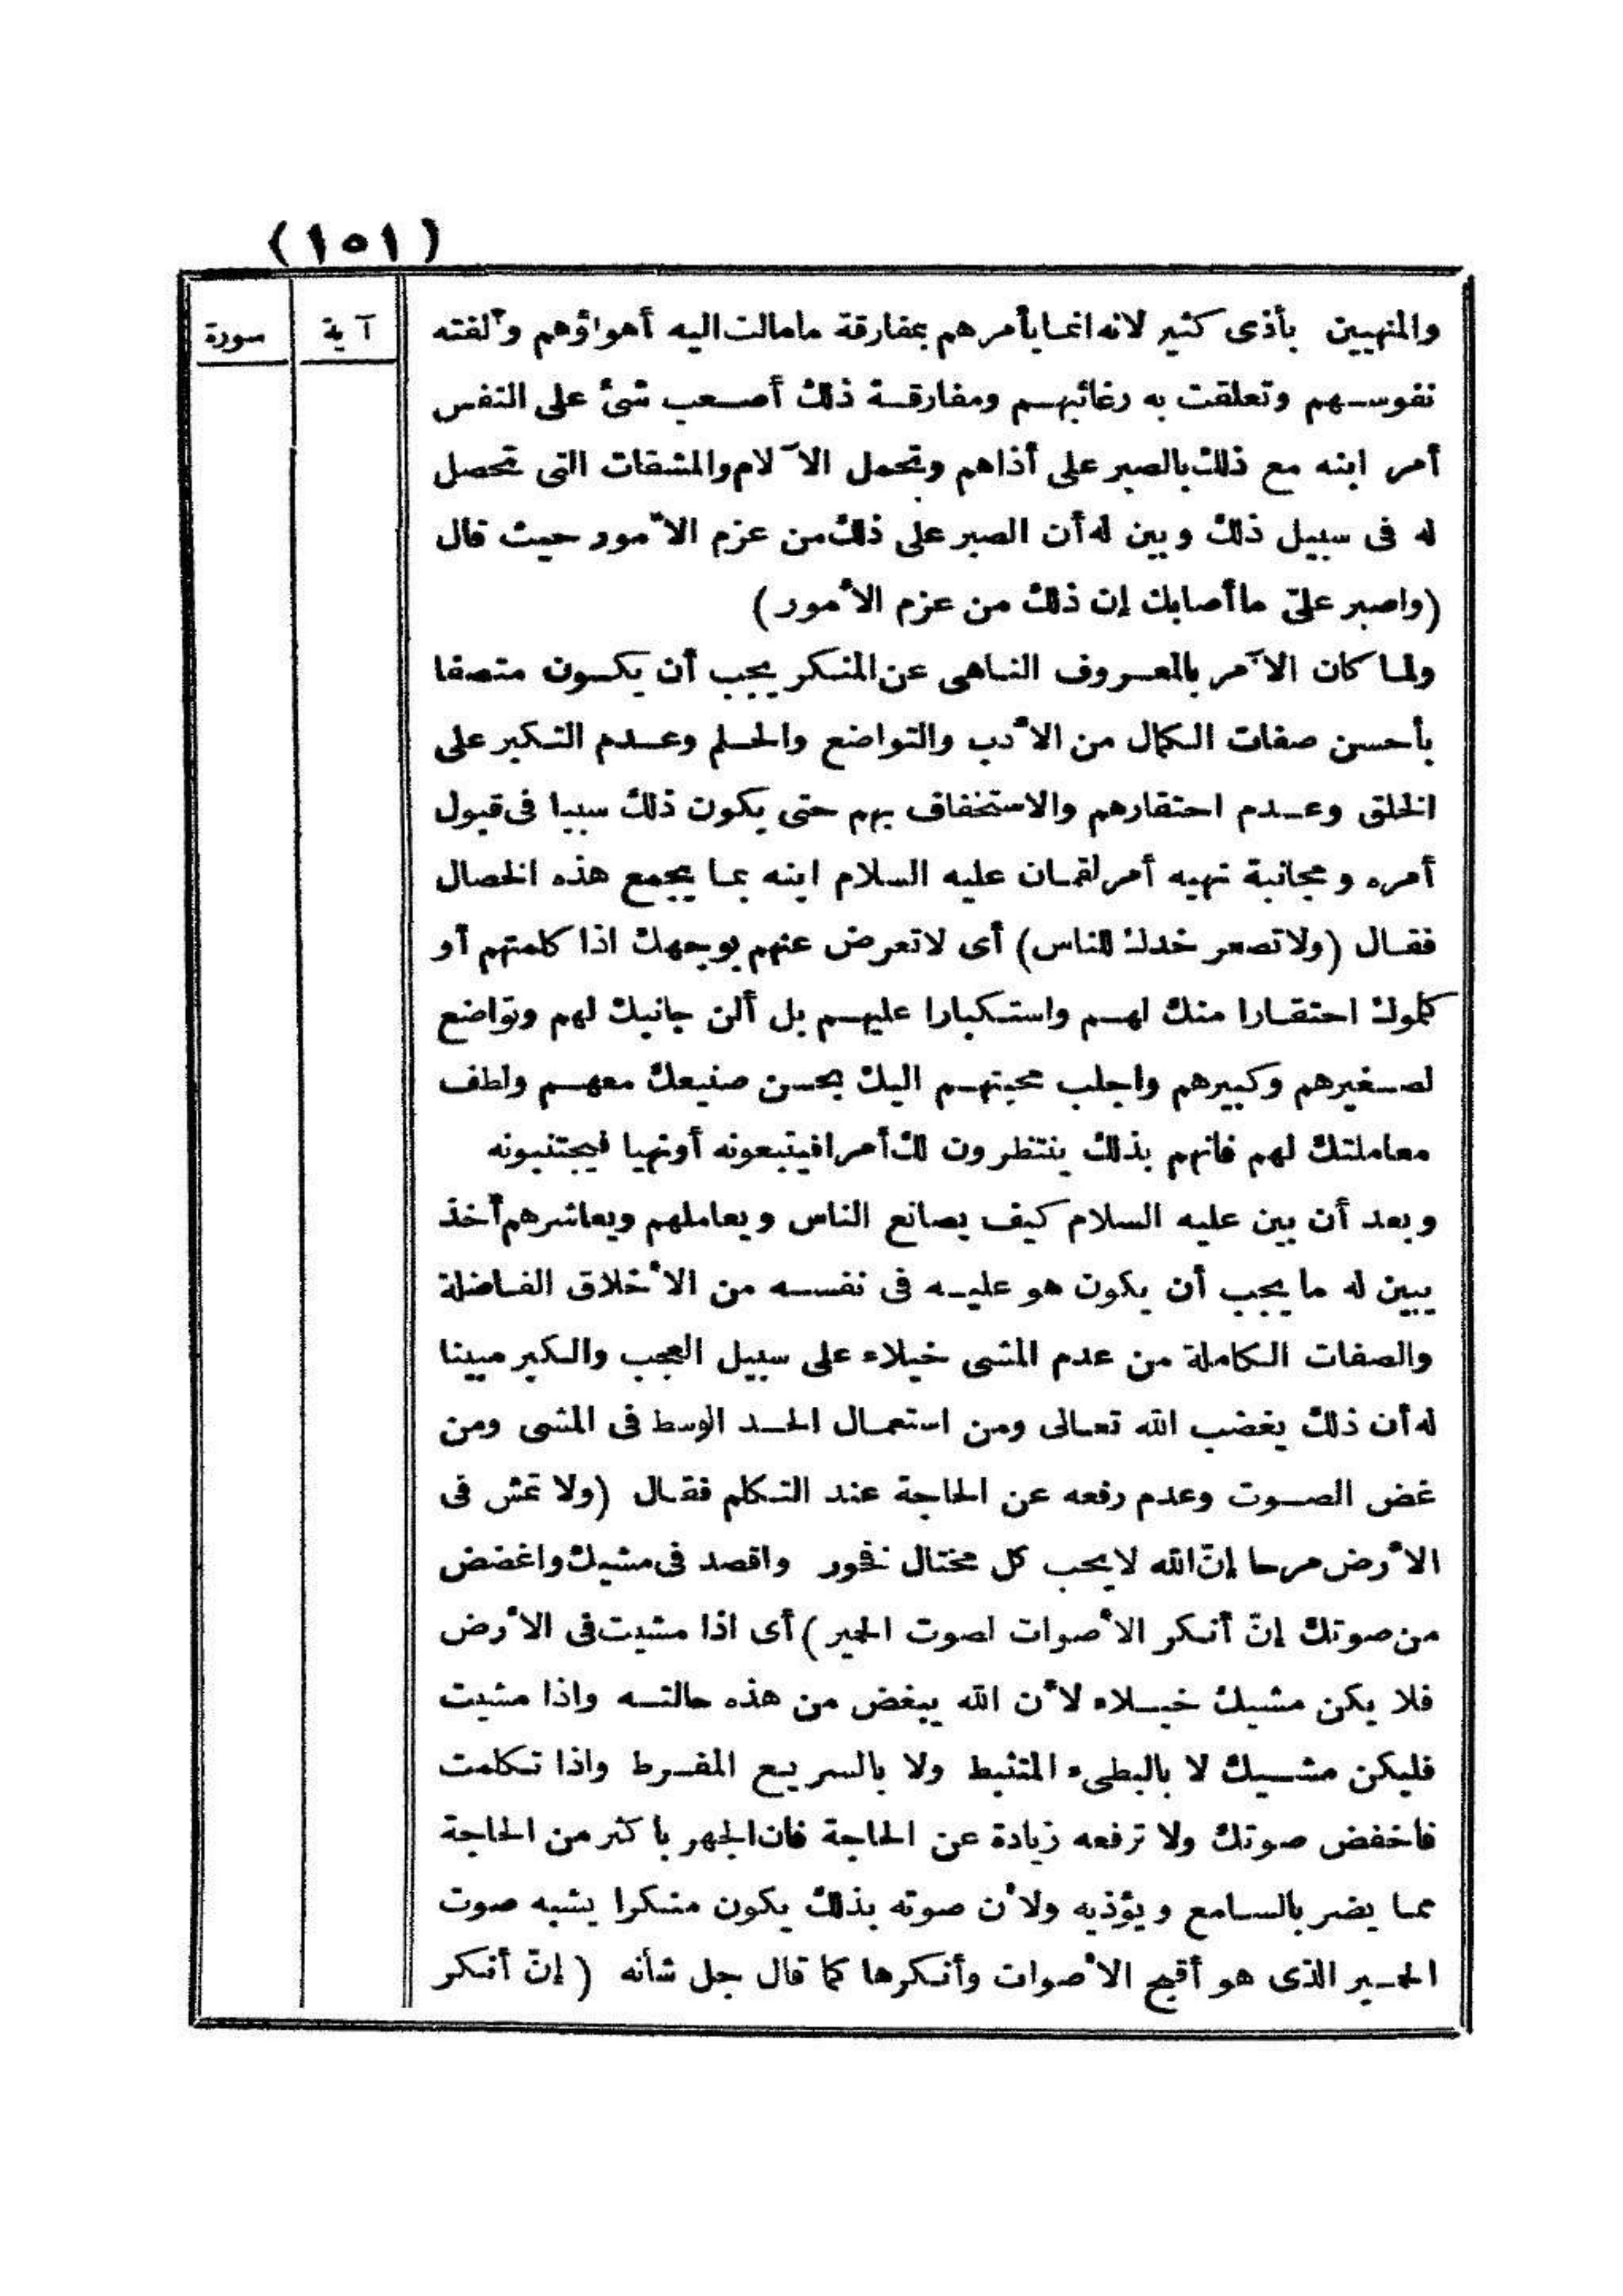 (١٥١)
آية
سورة
والمنهيين بأذى كثير لانه انما يأمرهم بمفارقة مامالت اليه أهواؤهم وألفته
نفوسهم وتعلقت به رغائبهم ومفارقة ذلك أصعب شئ على النفس
أمر ابنه مع ذلك بالصبر على أذاهم وتحمل الآلام والمشقات التى تحصل
له فى سبيل ذلك وبين له أن الصبر على ذلك من عزم الأمور حيث قال
(واصبر على ما أصابك إن ذلك من عزم الأمور)
ولما كان الآمر بالمعروف الناهى عن المنكر يجب أن يكون متصفا
بأحسن صفات الكمال من الأدب والتواضع والحلم وعدم التكبر على
الخلق وعدم احتقارهم والاستخفاف بهم حتى يكون ذلك سببا فى قبول
أمره ومجانبة نهيه أمر لقمان عليه السلام ابنه بما يجمع هذه الخصال
فقال (ولا تصعر خدك للناس) أى لا تعرض عنهم بوجهك اذا كلمتهم أو
كلموك احتقارا منك لهم واستكبارا عليهم بل ألن جانبك لهم وتواضع
لصغيرهم وكبيرهم واجلب محبتهم اليك بحسن صنيعك معهم ولطف
معاملتك لهم فانهم بذلك ينتظرون لك أمرا فيتبعونه أونهيا فيجتنبونه
وبعد أن بين عليه السلام كيف يصانع الناس ويعاملهم ويعاشرهم أخذ
يبين له ما يجب أن يكون هو عليه فى نفسه من الأخلاق الفاضلة
والصفات الكاملة من عدم المشى خيلاء على سبيل العجب والكبر مبينا
له أن ذلك يغضب الله تعالى ومن استعمال الحد الوسط فى المشى ومن
غض الصوت وعدم رفعه عن الحاجة عند التكلم فقال (ولا تمش فى
الأرض مرحا إنّ الله لا يحب كل مختال فخور واقصد فى مشيك واغضض
من صوتك إنّ أنكر الأصوات لصوت الحمير) أى اذا مشيت فى الأرض
فلا يكن مشيك خيلاء لأن الله يبغض من هذه حالته واذا مشيت
فليكن مشيك لا بالبطىء المتثبط ولا بالسريع المفرط واذا تكلمت
فاخفض صوتك ولا ترفعه زيادة عن الحاجة فان الجهر بأكثر من الحاجة
مما يضر بالسامع ويؤذيه ولأن صوته بذلك يكون منكرا يشبه صوت
الحمير الذى هو أقبح الأصوات وأنكرها كما قال جل شأنه (إنّ أنكر